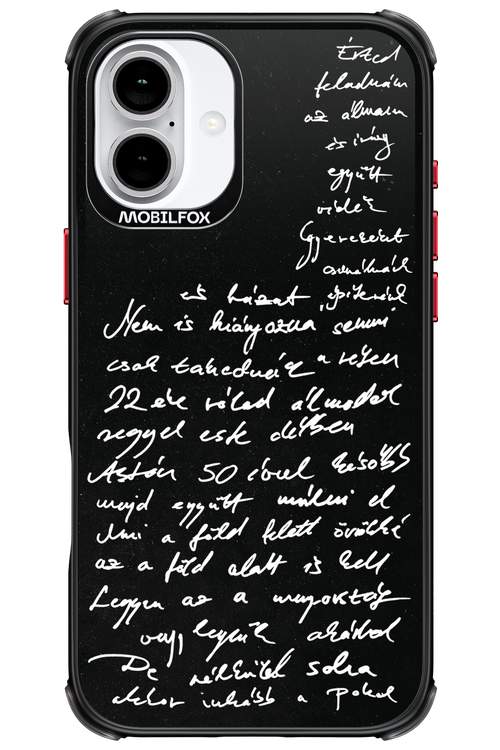 MOBILFOX
Érted
feladnám
az álmaim
és így
együtt
Gyerekeket
csinálnánk
és házat építenénk
Nem is hiányozna semmi
csak takarodnánk a
22 éve rólad álmodok
reggel este délben
Aztán 50 évvel később
majd együtt múlni el
Ami a föld felett örökké
az a föld alatt is kell
Legyen az a mennyország
vagy legyünk akárhol
De nélküled soha
akkor inkább a Pokol